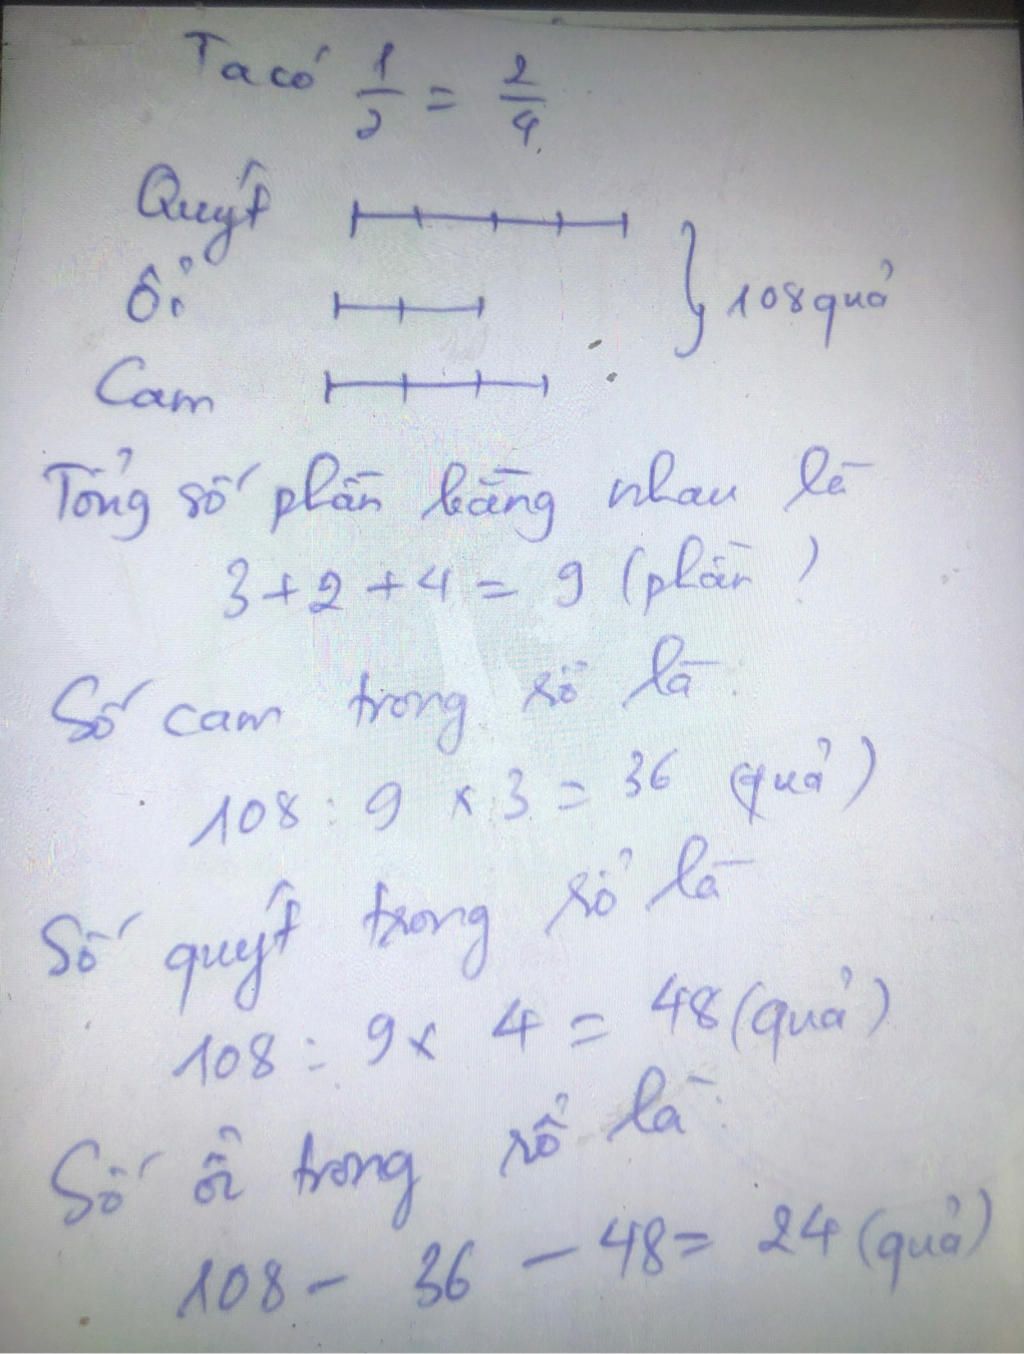 Ta có 1/2 = 2/4
Quýt
Ổi
108 quả
Cam
Tổng số phần bằng nhau là
3 + 2 + 4 = 9 (phần)
Số cam trong sổ là
108 : 9 x 3 = 36 (quả)
Số quýt trong sổ là
108 : 9 x 4 = 48 (quả)
Số ổi trong sổ là
108 - 36 - 48 = 24 (quả)